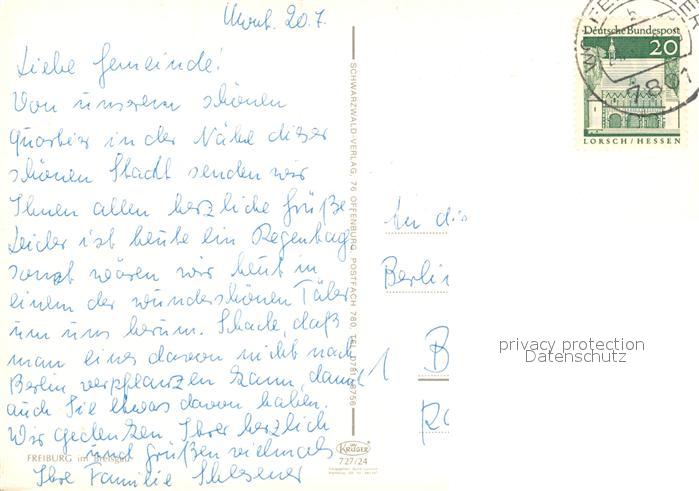 20.7.
Liebe Gemeinde!
Von unserem schönen
Quartier in der Nähe dieser
schönen Stadt senden wir
Ihnen allen herzliche Grüße
Leider ist heute ein Regentag
sonst wären wir heut in
einem der wunderschönen Täler
um uns herum. Schade, daß
man eines davon nicht nach
Berlin verpflanzen kann, damit
auch Sie etwas davon haben.
Wir gedenken Ihrer herzlich
und grüßen vielmals
Ihre Familie
FREIBURG im Breisgau
SCHWARZWALD-VERLAG, 76 OFFENBURG, POSTFACH 780, TEL.
KRÜGER
727/24
Deutsche Bundespost
20
LORSCH/HESSEN
An die
Berli
1 B
privacy protection
Datenschutz